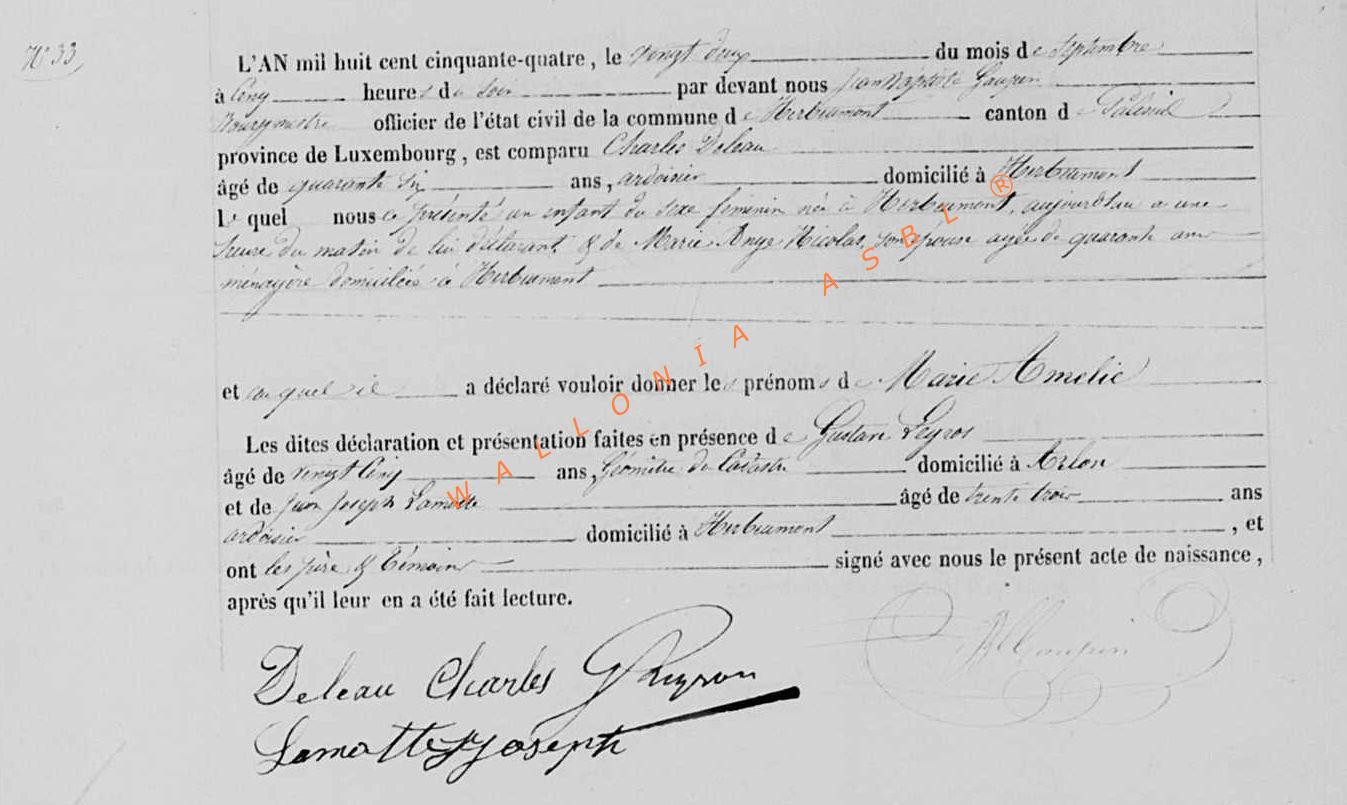 N° 33
L'AN mil huit cent cinquante-quatre, le vingt deux du mois de Septembre
à cinq heures du soir par devant nous Jean Baptiste Gaupin
Bourgmestre officier de l'état civil de la commune de Herbeumont canton de Paliseul
province de Luxembourg, est comparu Charles Deleau
âgé de quarante six ans, ardoisier domicilié à Herbeumont
Le quel nous a présenté un enfant du sexe feminin née à Herbeumont, aujourd'hui a une
heure du matin de lui déclarant & de Marie Ange Nicolas, son epouse agée de quarante ans
ménagère domiciliée à Herbeumont
et auquel il a déclaré vouloir donner les prénoms de Marie Amelie
Les dites déclaration et présentation faites en présence de Gustave
âgé de vingt cinq ans, Géomètre du Cadastre domicilié à Arlon
et de Jean Joseph Lamotte âgé de trente trois ans
ardoisier domicilié à Herbeumont, et
ont les père & témoins signé avec nous le présent acte de naissance,
après qu'il leur en a été fait lecture.
Deleau Charles G
Lamotte Joseph
WALLONIA ASBL ®